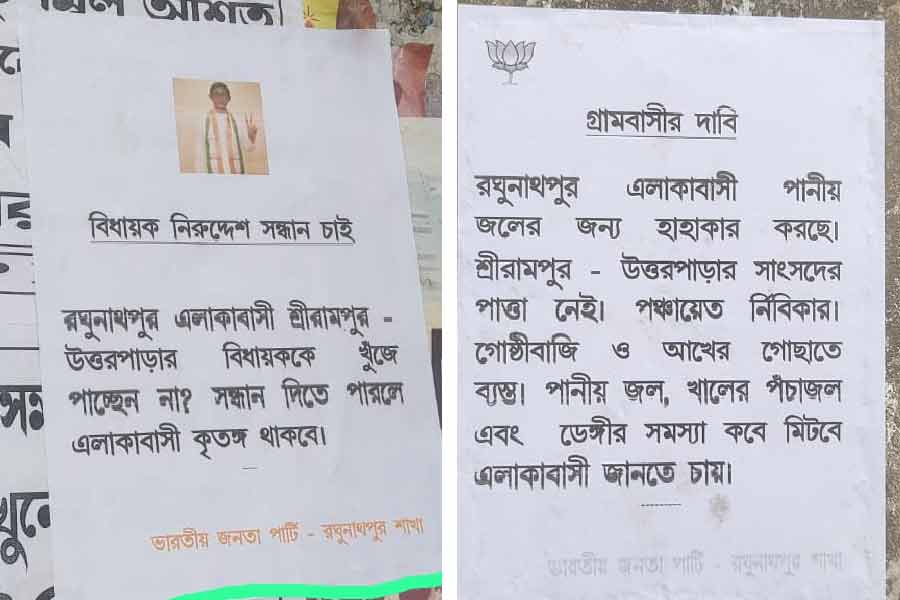 বিধায়ক নিরুদ্দেশ সন্ধান চাই
রঘুনাথপুর এলাকাবাসী শ্রীরামপুর -
উত্তরপাড়ার বিধায়ককে খুঁজে
পাচ্ছেন না? সন্ধান দিতে পারলে
এলাকাবাসী কৃতঙ্গ থাকবে।
ভারতীয় জনতা পার্টি - রঘুনাথপুর শাখা
গ্রামবাসীর দাবি
রঘুনাথপুর এলাকাবাসী পানীয়
জলের জন্য হাহাকার করছে।
শ্রীরামপুর - উত্তরপাড়ার সাংসদের
পাত্তা নেই। পঞ্চায়েত র্নিবিকার।
গোষ্ঠীবাজি ও আখের গোছাতে
ব্যস্ত। পানীয় জল, খালের পঁচাজল
এবং ডেঙ্গীর সমস্যা কবে মিটবে
এলাকাবাসী জানতে চায়।
ভারতীয় জনতা পার্টি - রঘুনাথপুর শাখা